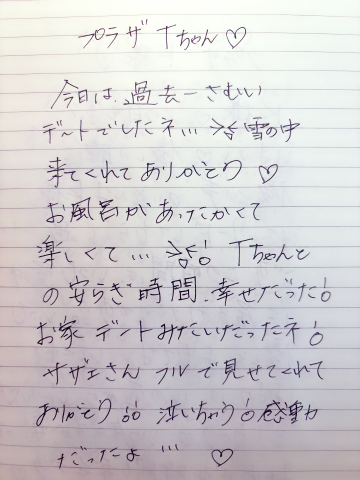 プラザ Tちゃん♡
今日は、過去一さむい
デートでしたネ… 雪の中
来てくれてありがとう ♡
お風呂があったかくて
楽しくて… Tちゃんと
の安らぎ時間、幸せだった!
お家デートみたいだったネ!
サザエさん フルで見せてくれて
ありがとう!! 泣いちゃう!感動
だったよ… ♡